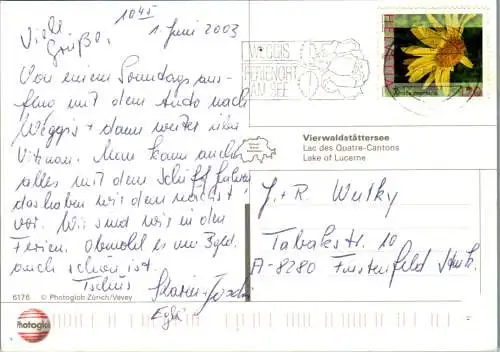 Viele Grüße!
1045
1. Juni 2003
Von einem Sonntagsaus-
flug mit dem Auto nach
Weggis + dann weiter über
Vitznau. Man kann auch
alles mit dem Schiff fahren
das haben wir dem nächst
vor. Wir sind wir in den
Ferien. Obwohl es im Bgld.
auch schön ist.
Tschüs
WEGGIS
FERIENORT
AM SEE
Vierwaldstättersee
Lac des Quatre-Cantons
Lake of Lucerne
J. + R. Wutky
Tabakstr. 10
A-8280 Fürstenfeld Stmk.
6176 © Photoglob Zürich/Vevey
Photoglob